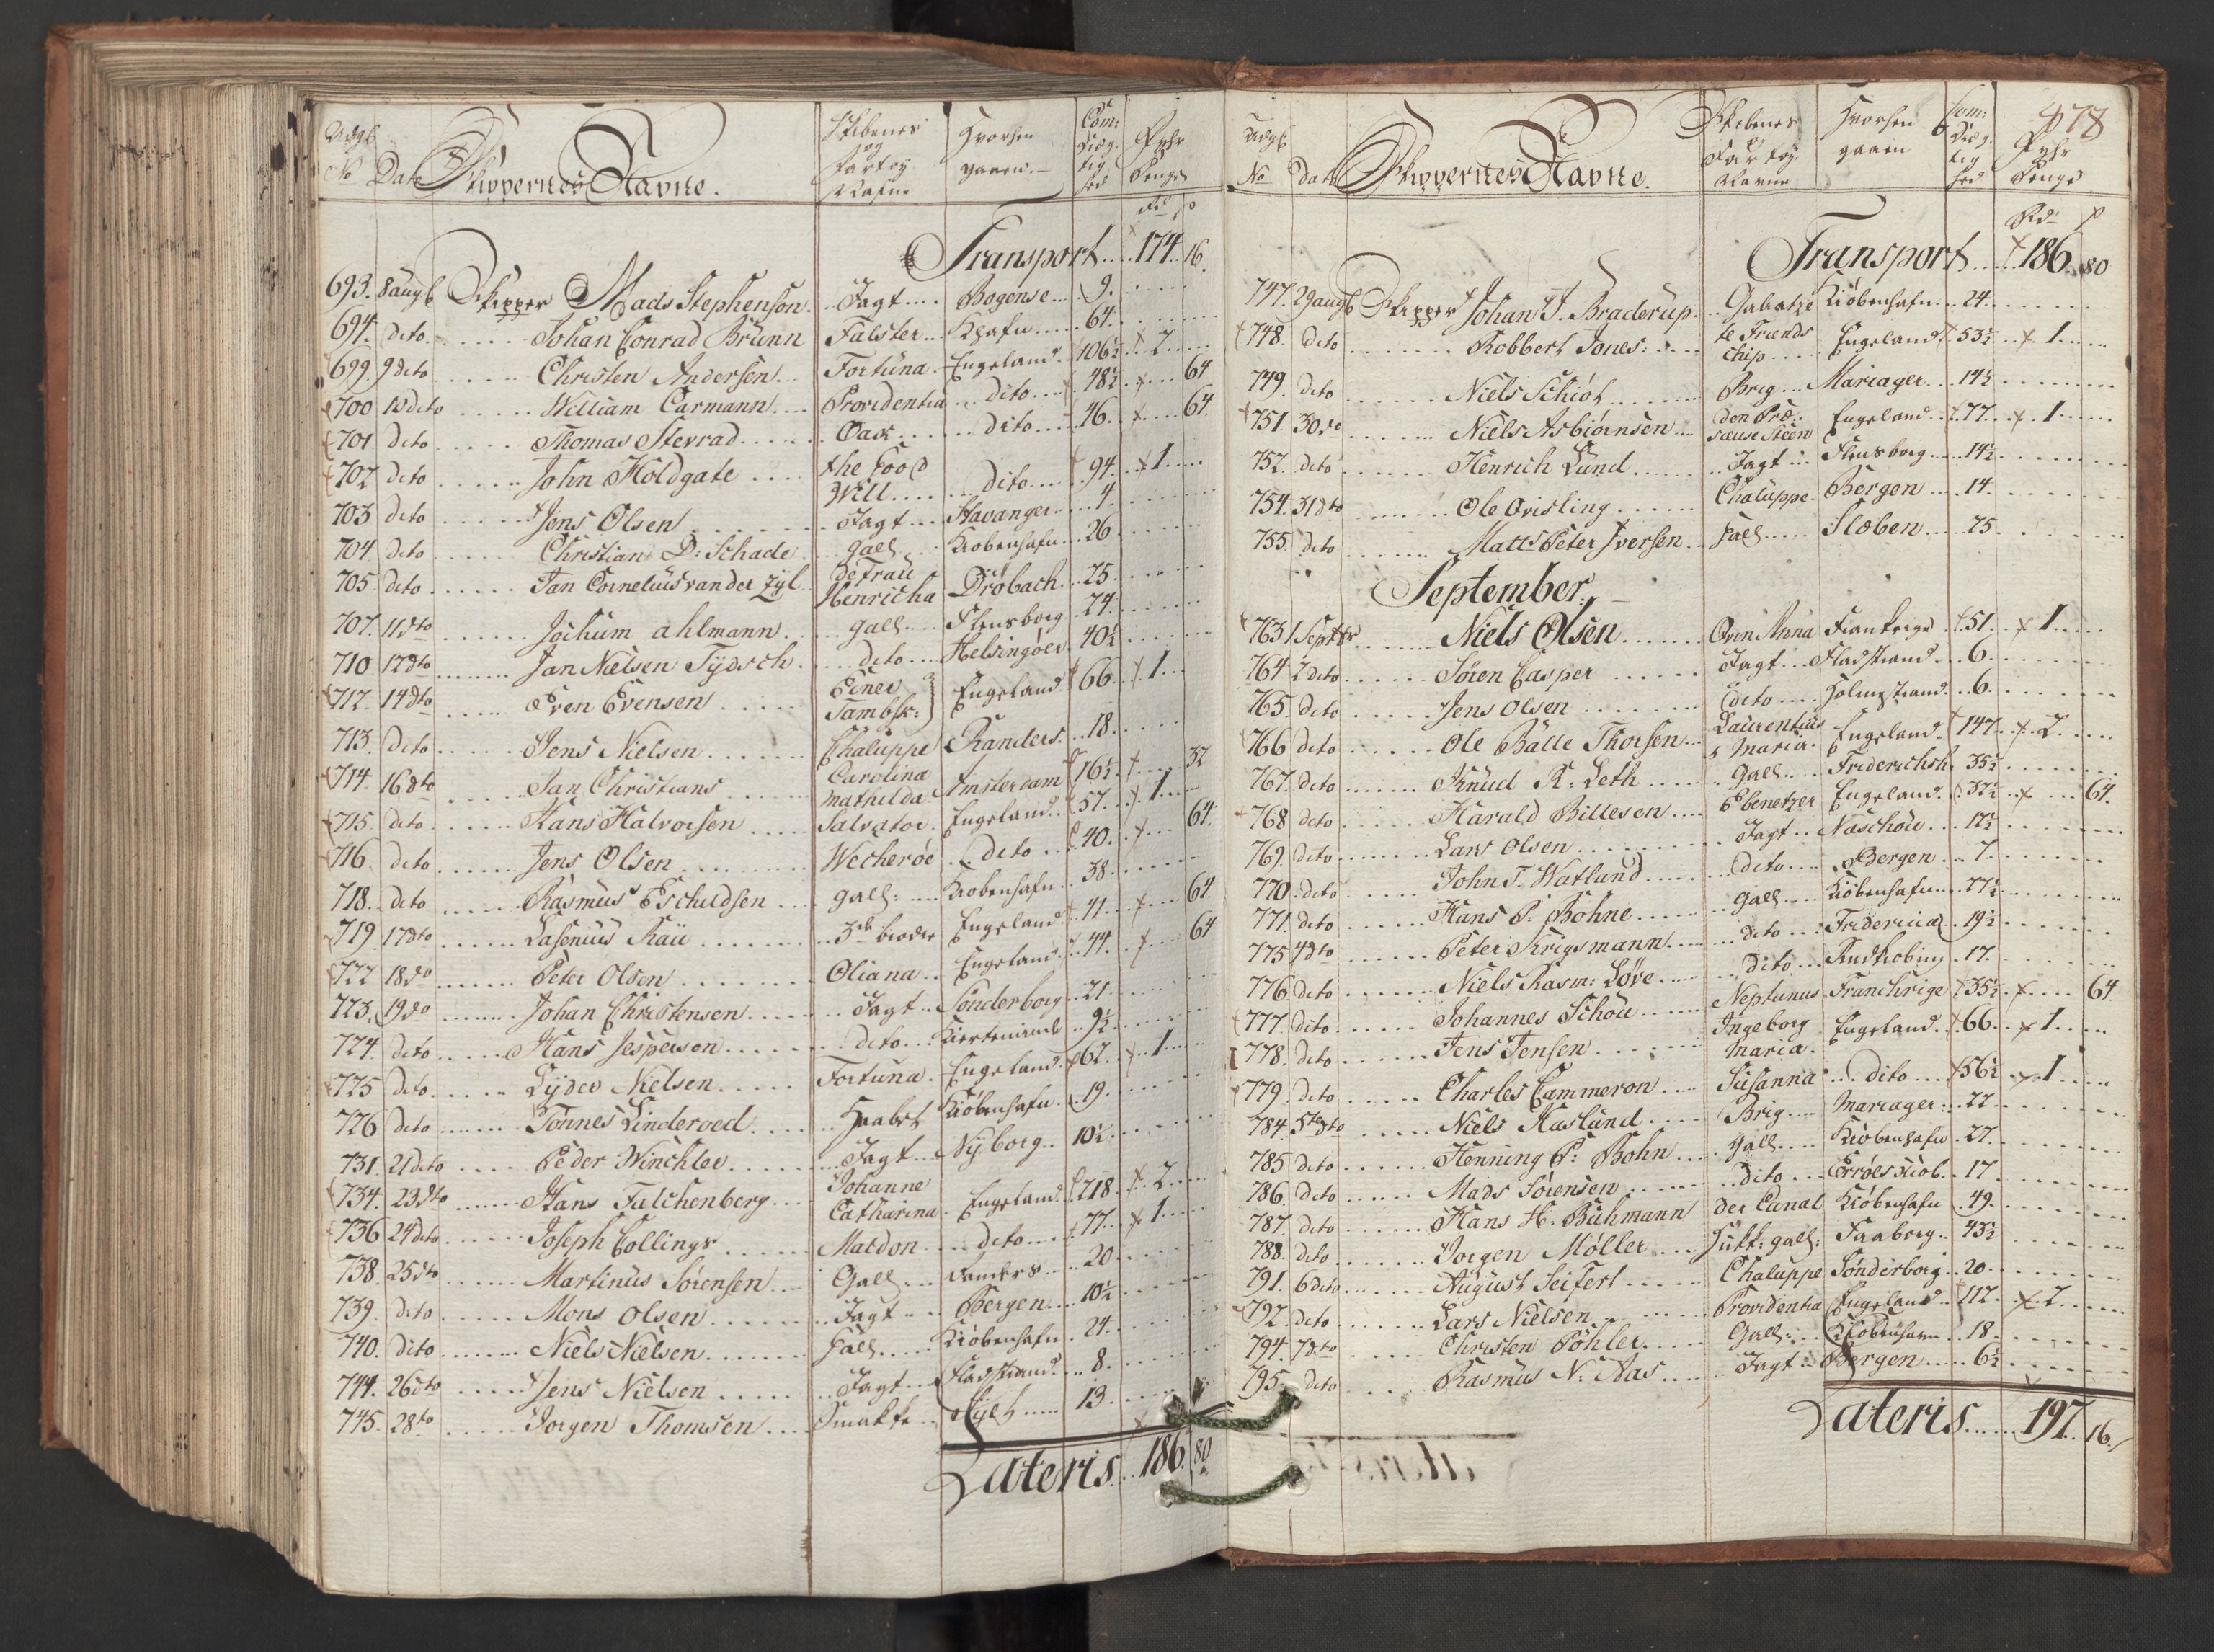 Udgb No Date Skippernes Navne. Skibenes og Fartøy Nafne Hvorhen gaaen Com: Dræg- tig hed Fyhr Penge
Rd ß
Transport .. 174. 16.
693. 8 augb Skipper Mads Stephenson. Jagt Bogense 9.
694. dito Johan Conrad Brunn Falster Khafn 64.
699. 9 dito Christen Andersen Fortuna Engeland 106½ 2
700 10 dito William Carmann Providentia dito 48½ 64
701 dito Thomas Stevrad Oak dito 46. 64
702 dito John Holdgate the Good
Will dito 94. 1
703 dito Jens Olsen Jagt Stavanger 4.
704 dito Christian D: Schade gall Kiøbenhafn 26
705 dito Jan Cornelius van der Zyl de Frau
Henricha Drøbach 25
707. 11 dto Jochum ahlmann gall Flensborg 24.
710 12 dto Jan Nielsen Tydsch dito Helsingøer 40½
712. 14 dto Even Evensen Einer
Tambsk: Engeland 66 1
713. dito Jens Nielsen Chaluppe Randers 18.
714. 16 dto Jan Christians Carolina
Mathilda Amsterdam 16½ 32
715. dito Hans Halvorsen Salvator Engeland 57 1
716 dito Jens Olsen Wecherøe dito 40. 64
718. dito Rasmus Eschildsen gall: Kiobenhafn 38
719 17 dto Lasenius Rau 3de brødre Engeland 41 64
722 18 do Peter Olsen Oliana Engeland 44. 64
723. 19 do Johan Christensen Jagt Sønderborg 21
724. dito Hans Jesperson dito Kierteminde 9½
725 dito Lyder Nielsen Fortuna Engeland 62. 1
726 dito Tønnes Linderoed Haabet Kiøbenhafn 19.
731. 21 dito Peder Winchler Jagt Nyborg 10½
734. 23 dto Hans Falchenberg Johanne
Catharina Engeland 218 2
736 24 dito Joseph Collings Maldon dito 77 1
738. 25 dto Martinus Sørensen Gall Randers 20
739. dito Mons Olsen Jagt Bergen 10½
740. dito Niels Nielsen Gall Kiøbenhafn 24.
744. 26 dto Jens Nielsen Jagt Fladstrand 8.
745. 28 to Jørgen Thomsen Smakke Sylt 13
Lateris 186. 80
478
Udgb No Dat Skippernes Navne. Skibenes Fartøy Navne Hvorhen gaaen Com: Dræg- tig hed Fyhr Penge
Rd ß
Transport 186. 80
747. 29 augb Skipper Johan J. Braderup Galeatze Kiøbenhafn 24.
748. dito Robbert Jones te Friends
chip Engeland 53½ 1
749. dito Niels Schiøt Brig Mariager 14½
751. 30 do Niels Asbiørnsen Den Præ-
sieuse Steen Engeland 77 1
752. dito Henrich Lund Jagt Flensborg 14½
754. 31 dto Ole Qvisling Chaluppe Bergen 14.
755. dito Matts Peter Iversen Gall Sleben 25
September.
763 1 Septbr Niels Olsen Qvin Anna Frankrige 51. 1
764 2 dito Søren Casper Jagt Fladstrand 6.
765. dito Jens Olsen dito Holmestrand 6.
766 dito Ole Balle Thorsen Laurentius
& Maria Engeland 147 2
767. dito Knud R: Leth Gall Friderichsh. 35½
768 dito Harald Billesen Ebenetzer Engeland 37½ 64.
769. dito Lars Olsen Jagt Naschou 12½
770. dito John T. Watland dito Bergen 7.
771. dito Hans P: Bohne gall Kiøbenhafn 27½
775 4 dto Peter Krigsmann dito Fridericia 19½
776 dito Niels Rasm: Løve dito Rudkiobing 17.
777 dito Johannes Schou Neptunus Franchrige 35½ 64
778. dito Jens Jensen Ingeborg
Maria. Engeland 66 1
779. dito Charles Cammeron Susanna dito 56½ 1
784. 5te dto Niels Haslund Brig Mariager 22
785 dito Henning P: Bohn gall Kiøbenhafn 27.
786. dito Mads Sørensen dito Erröeskiøb. 17
787. dito Hans H. Buhmann der Canal Kiøbenhafn 49.
788. dito Jørgen Møller Hukk: gall: Faaborg 43½
791. 6 dito August Seifert Chaluppe Sønderborg 20
792. dito Lars Nielsen Providentia Engeland 112. 2
794. 7 dto Christen Pøhler Gall: Kiøbenhavn 18
795 dito Rasmus N: Aas Jagt Bergen 6½
Lateris 197. 16.